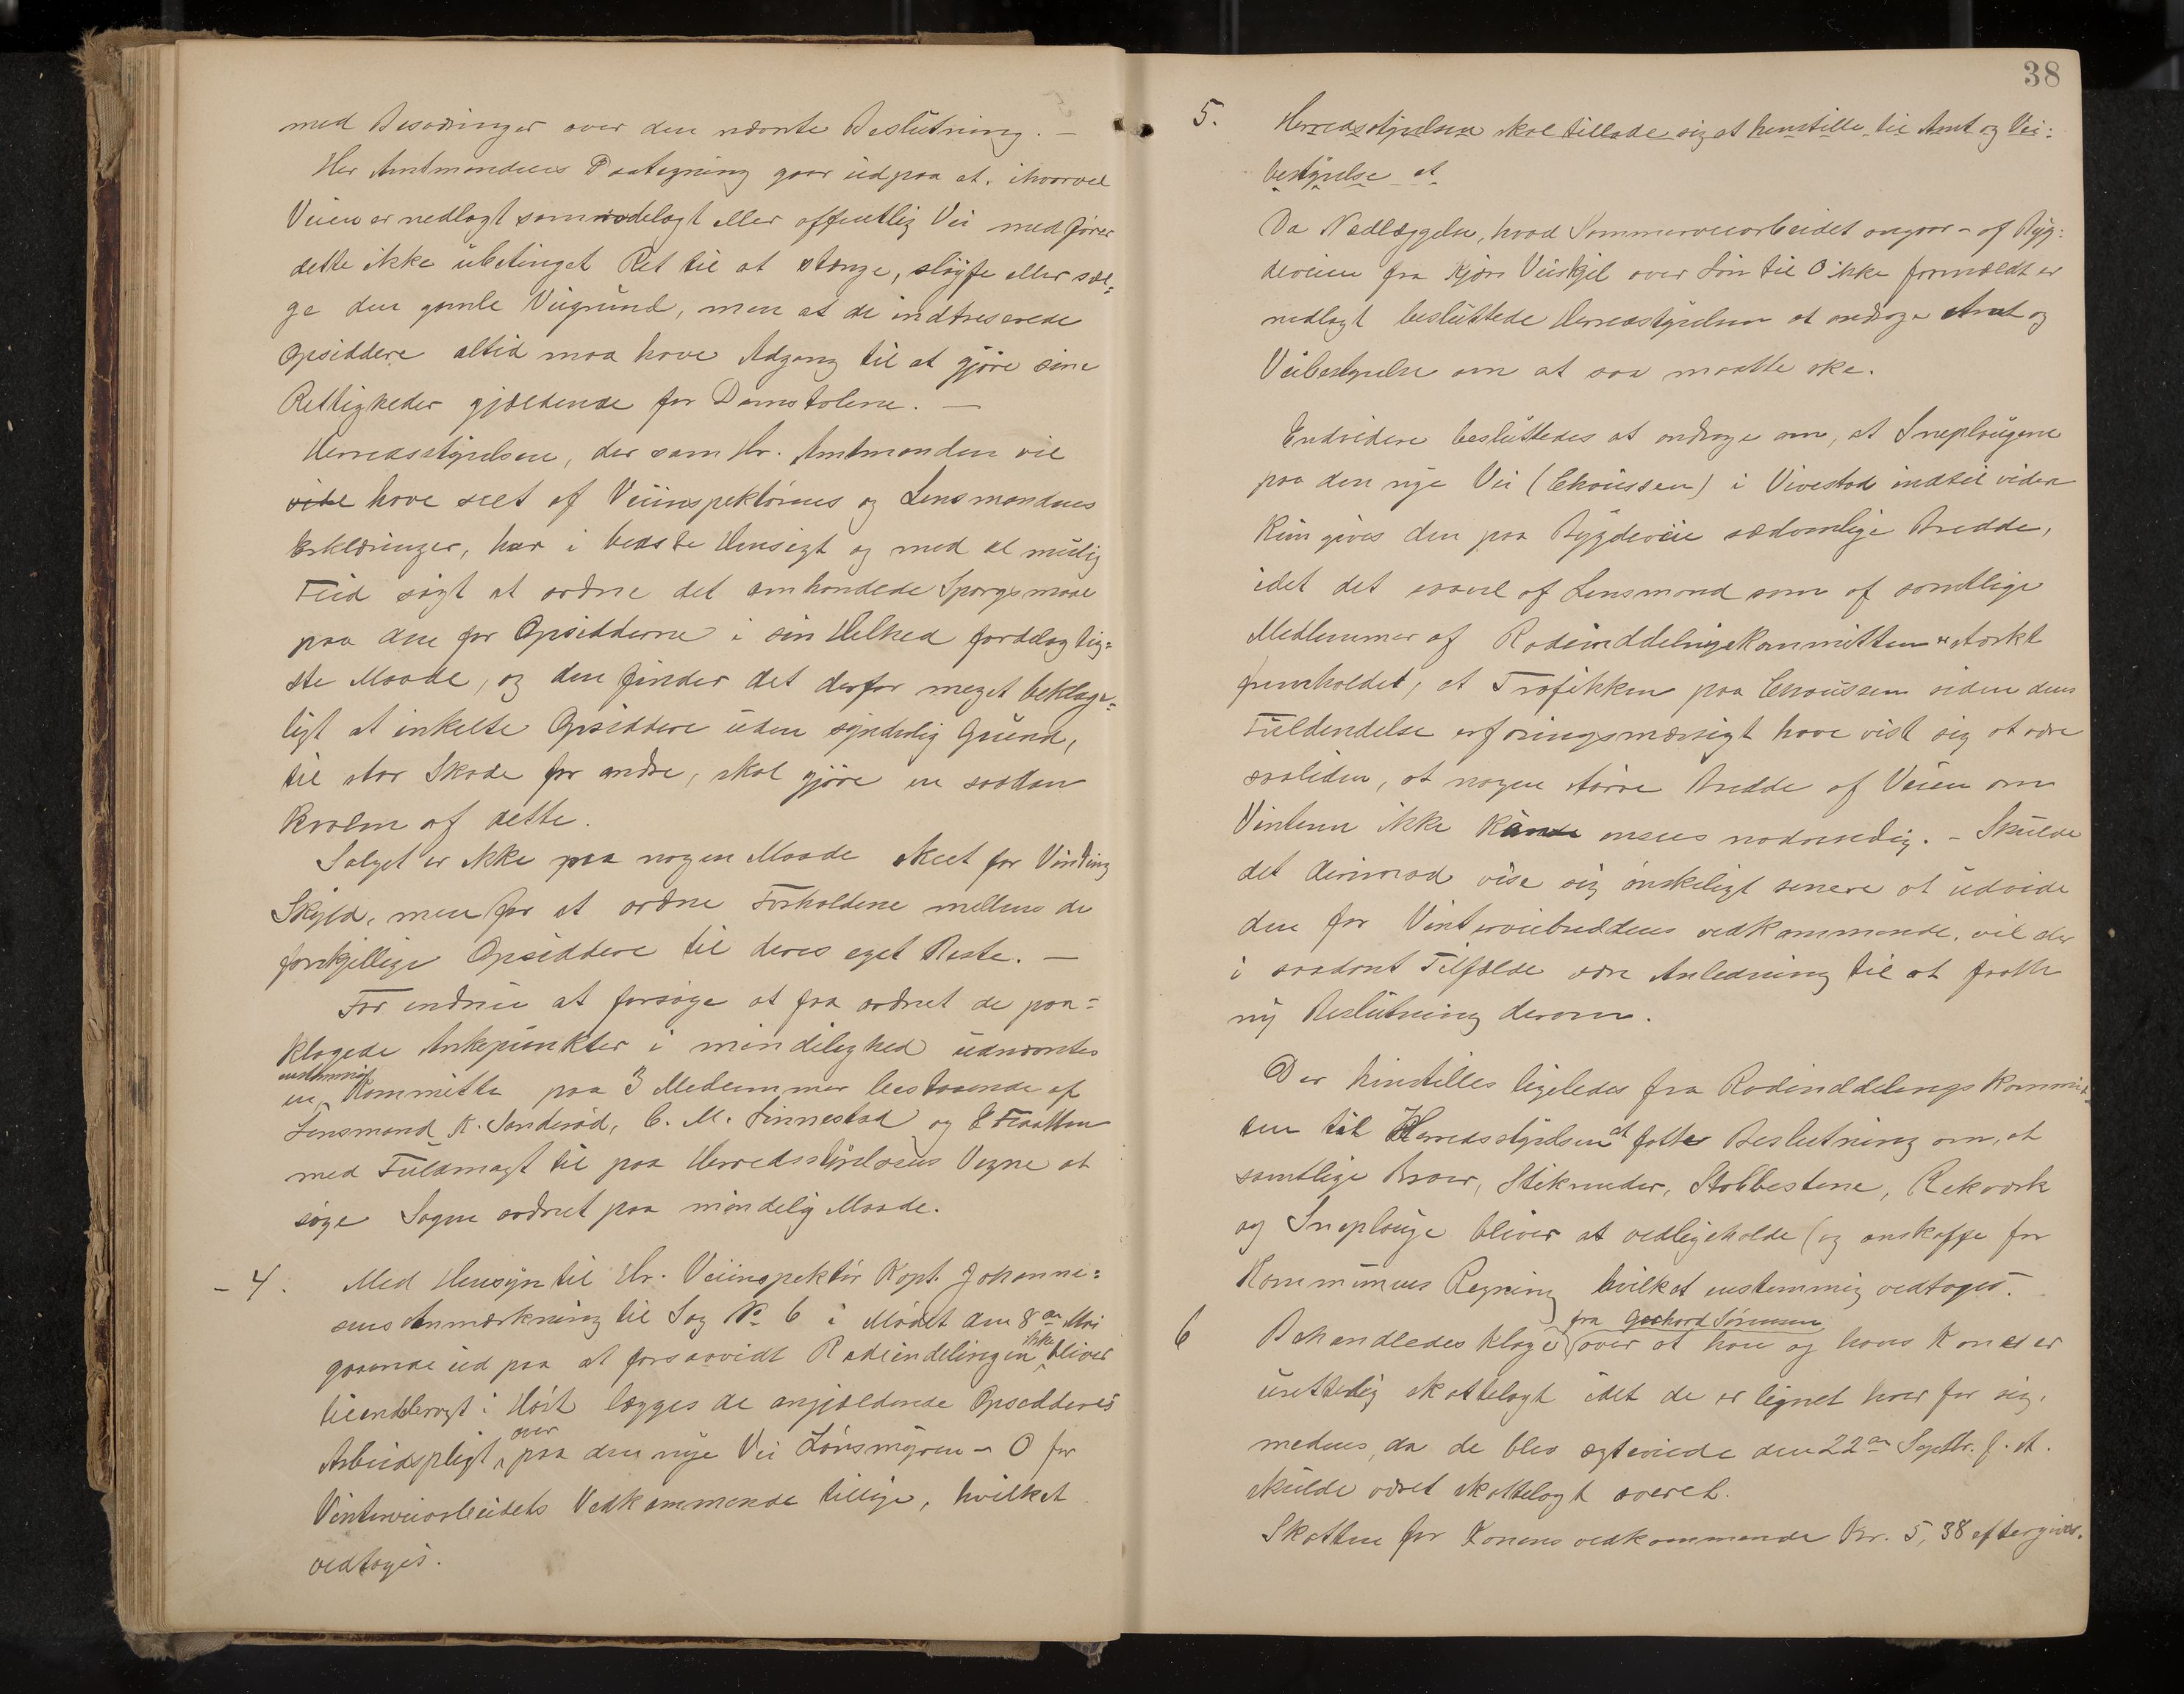 med Besværinger over den nævnte Beslutning. —
Her Amtmandens Paategning gaar ud paa at, ihvorvel
Veien er nedlagt som rodelagt eller offentlig Vei medfører
dette ikke ubetinget Ret til at stænge, sløife eller sæl=
ge den gamle Veigrund, men at de indtreserede
Opsiddere altid maa have Adgang til at gjøre sine
Rettigheder gjældende for Domstolene. —
Herredsstyrelsen, der som Hr. Amtmanden vil
vide have seet af Veiinspektørens og Lensmandens
Erklæringer, har i bedste Hensigt og med al mulig
Flid søgt at ordne det omhandlede Spørgsmaal
paa den for Opsidderne i sin Helhed fordelagtig=
ste Maade, og den finder det derfor meget beklage=
ligt at enkelte Opsiddere uden synderlig Grund,
til stor Skade for andre, skal gjøre en saadan
Kvalm af dette.
Salget er ikke paa nogen Maade skeet for Vinding
Skyld, men for at ordne Forholdene mellem de
forskjellige Opsiddere til deres eget Bedste. —
For endnu at forsøge at faa ordnet de paa=
klagede Ankepunkter i mindelighed udnævntes
enstemmig
en Kommitte paa 3 Medlemmer bestaaende af
Lensmand K. Sanderød, C. M. Linnestad og E Flaatten
med Fuldmagt til paa Herredsstyrelsens Vegne at
søge Sagen ordnet paa mindelig Maade.
- 4. Med Hensyn til Hr. Veiinspektør Kapt. Johanne=
sens Anmærkning til Sag No 6 i Mødet den 8de Mai
gaaende ud paa at forsaavidt Rodeindelingen ikke bliver
tilendebragt i Høst lægges de angjældende Opsidderes
Arbeidspligt over paa den nye Vei Lønsmyren - O for
Vinterveiarbeidets Vedkommende tillige, hvilket
vedtoges.
38
5. Herredsstyrelsen skal tillade sig at henstille til Amt og Vei=
bestyrelse at
Da Nedlæggelse, hvad Sommerveiarbeidet angaar - af Byg=
deveien fra Kjærs Veiskjel over Løn til O ikke formældt er
nedlagt besluttede Herredstyrelsen at andrage Amt og
Veibestyrelse om at saa maatte ske.
Endvidere besluttedes at andrage om, at Sneplougene
paa den nye Vei (Chaussen) i Vivestad indtil videre
kun gives den paa Bygdeveie sædvanlige Bredde,
idet det saavel af Lensmand som af samtlige
Medlemmer af Rodeinddelingskommitteen er stærkt
fremholdet, at Trafikken paa Chausseen siden dens
Fuldendelse erfaringsmæssigt have vist sig at være
saaliden, at nogen større Bredde af Veien om
Vinteren ikke kan ansees nødvendig. - Skulde
det derimod vise sig ønskeligt senere at udvide
den for Vinterveibreddens vedkommende, vil der
i saadant Tilfælde være Anledning til at fatte
ny Beslutning derom.
Der henstilles ligeledes fra Rodeinddelingskommit=
teen til Herredsstyrelsen at fatte Beslutning om, at
samtlige Broer, Stikrender, Stabbestene, Rekværk
og Sneplouge bliver at vedligeholde (og anskaffe for
Kommunens Regning hvilket enstemmig vedtoges.
6 Behandledes Klage fra Gerhard Sørensen over at han og hans Kone er
urettelig skattelagt idet de er lignet hver for sig,
medens, da de blev ægteviede den 22de Septbr. f. A.
skulde været skattelagt overet.
Skatten for Konens vedkommende Kr. 5,38 eftergives.